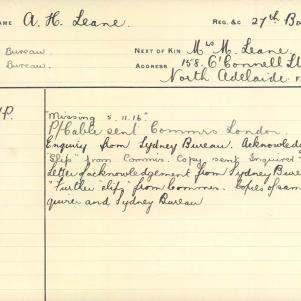 NAME A. H. Leane. REG. &C 27th Ba
Bureau. NEXT OF KIN Mrs M. Leane,
Bureau. ADDRESS 158 O'Connell St
North Adelaide
"Missing 5.11.16"
P/Cable sent Commrs London.
Enquiry from Sydney Bureau. Acknowled
"Slip" from Commrs. Copy sent Inquirer
Letter of acknowledgement from Sydney Bure
"Further "slip" from Commrs. Copies of sam
quirer and Sydney Bureau